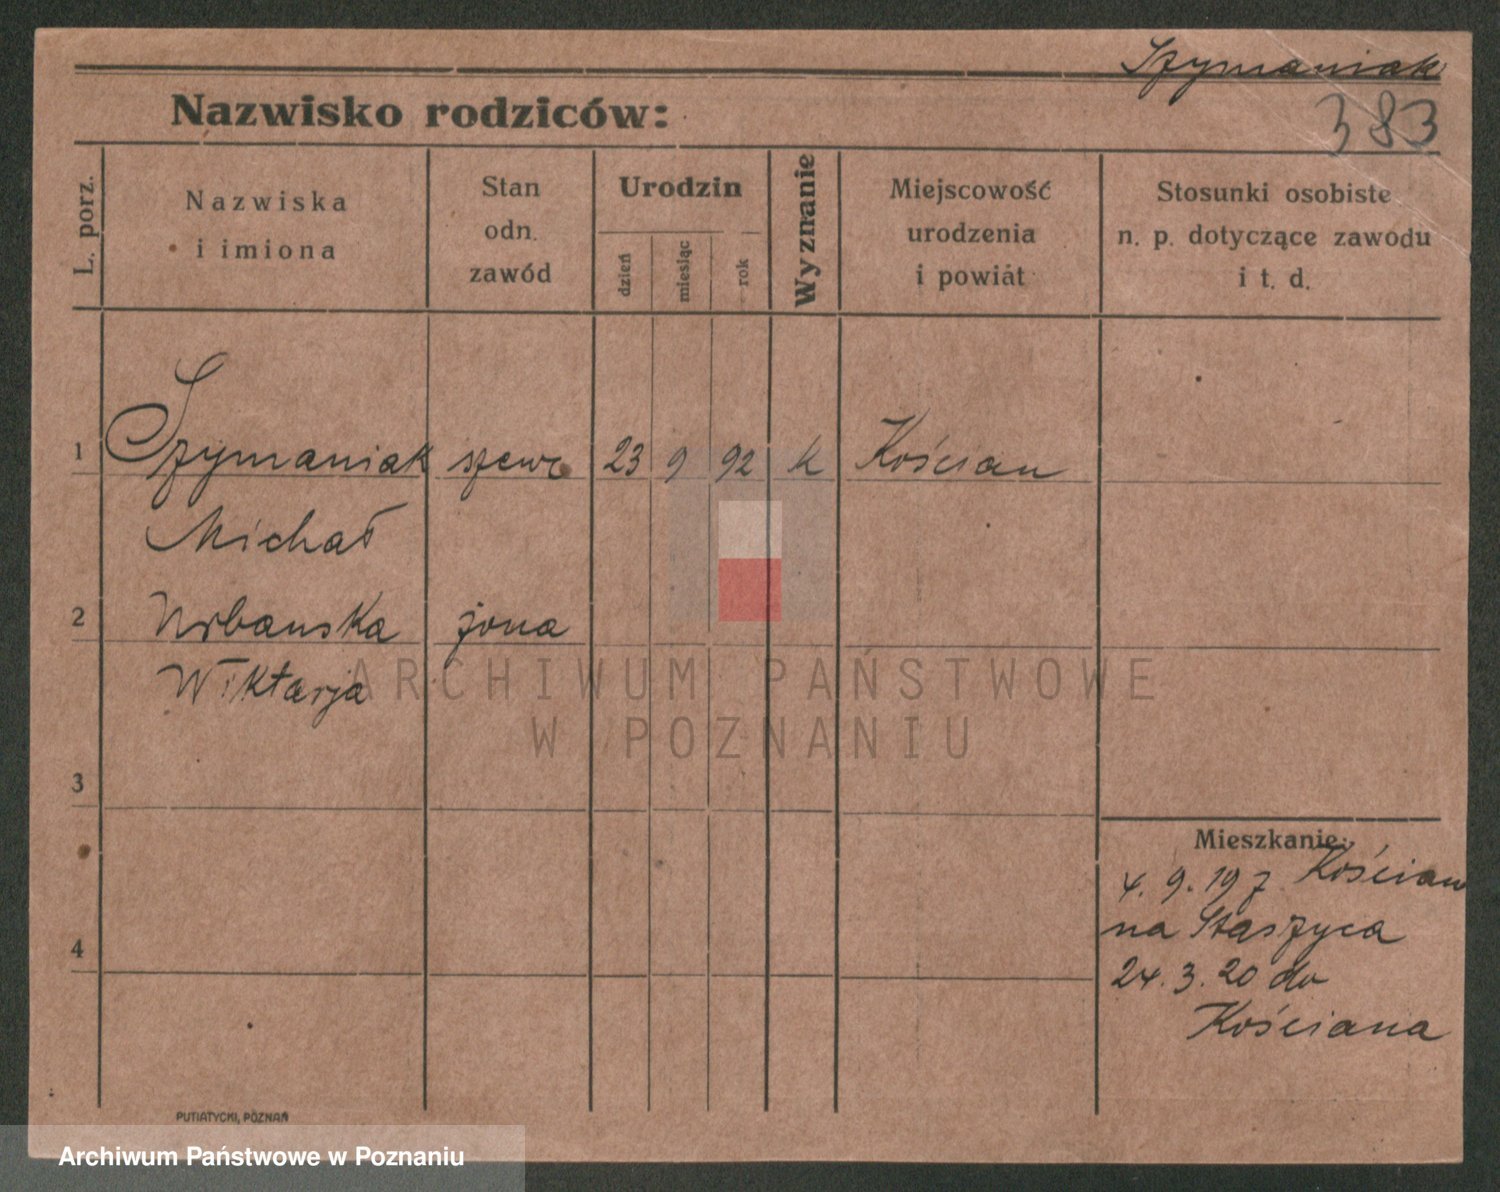 Szymaniak
383
Nazwisko rodziców:
L. porz.
Nazwiska
i imiona
Stan
odn.
zawód
Urodzin
dzień
miesiąc
rok
Wyznanie
Miejscowość
urodzenia
i powiat
Stosunki osobiste
n. p. dotyczące zawodu
i t. d.
1 Szymaniak szewc 23 9 92 k Kościan
Michał
2 Urbanska żona
Wiktarja
ARCHIWUM PAŃSTWOWE
W POZNANIU
3
Mieszkanie:
4. 9. 19 z Kościan
na Staszyca
4
24. 3. 20 do
Kościana
PUTIATYCKI, POZNAŃ
Archiwum Państwowe w Poznaniu